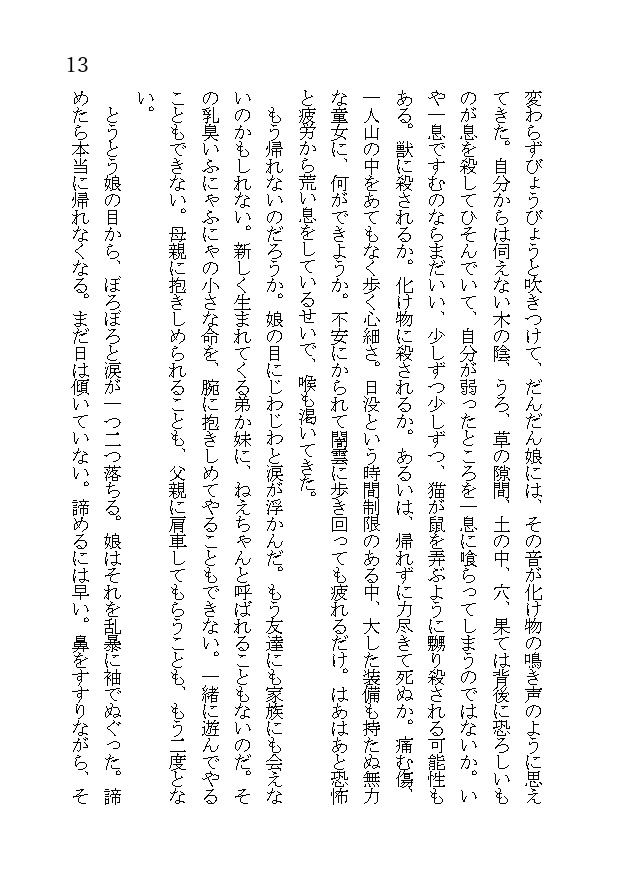 13
変わらずびょうびょうと吹きつけて、だんだん娘には、その音が化け物の鳴き声のように思え
てきた。自分からは伺えない木の陰、うろ、草の隙間、土の中、穴、果ては背後に恐ろしいも
のが息を殺してひそんでいて、自分が弱ったところを一息に喰らってしまうのではないか。い
や一息ですむのならまだいい、少しずつ少しずつ、猫が鼠を弄ぶように嬲り殺される可能性も
ある。獣に殺されるか。化け物に殺されるか。あるいは、帰れずに力尽きて死ぬか。痛む傷、
一人山の中をあてもなく歩く心細さ。日没という時間制限のある中、大した装備も持たぬ無力
な童女に、何ができようか。不安にかられて闇雲に歩き回っても疲れるだけ。はあはあと恐怖
と疲労から荒い息をしているせいで、喉も渇いてきた。
もう帰れないのだろうか。娘の目にじわじわと涙が浮かんだ。もう友達にも家族にも会えな
いのかもしれない。新しく生まれてくる弟か妹に、ねえちゃんと呼ばれることもないのだ。そ
の乳臭いふにゃふにゃの小さな命を、腕に抱きしめてやることもできない。一緒に遊んでやる
こともできない。母親に抱きしめられることも、父親に肩車してもらうことも、もう二度とな
い。
とうとう娘の目から、ぼろぼろと涙が一つ二つ落ちる。娘はそれを乱暴に袖でぬぐった。諦
めたら本当に帰れなくなる。まだ日は傾いていない。諦めるには早い。鼻をすすりながら、そ